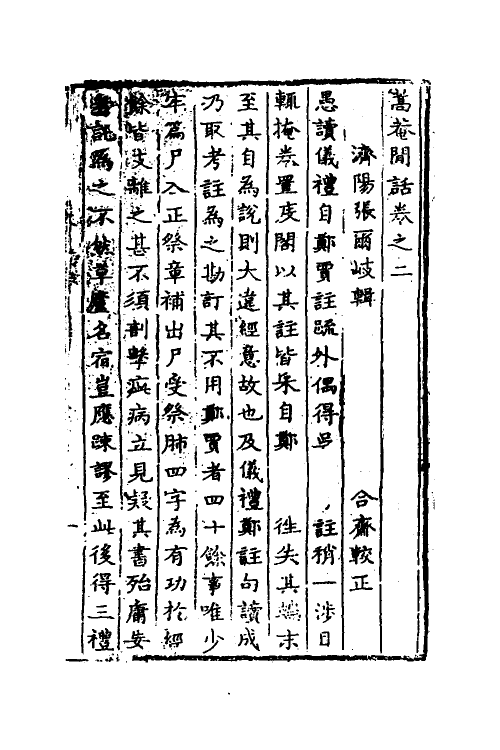 蒿菴閒話卷之二
濟陽張爾岐輯 合齋較正
愚讀儀禮自鄭賈註疏外偶得吳 註稍一涉目
輒掩卷置庋閣以其註皆采自鄭 徃失其端末
至其自為說則大違經意故也及儀禮鄭註句讀成
乃取考註為之勘訂其不用鄭賈者四十餘事唯少
牢篇尸入正祭章補出尸受祭肺四字為有功於經
餘皆支離之甚不須剖擊疵病立見疑其書殆庸妄
者託為之不然草廬名宿豈應踈謬至此後得三禮